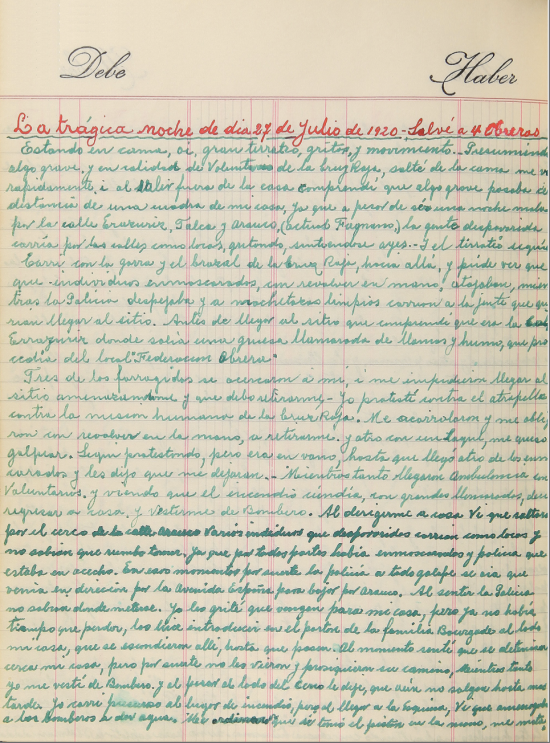 Debe Haber
La trágica noche de dia 27 de Julio de 1920 - Salvé a 4 Obreros
Estando en cama, oi, gran tiroteo, gritos, y movimiento.. Presumiendo
algo grave, y en calidad de Voluntario de la Cruz Roja, salté de la cama me v
rapidamente, i al salir fuera de la casa comprendi que algo grave pasaba a
distancia de una cuadra de mi casa, ya que a pesar de ser una noche mala
por la calle Errazuriz, Talca y Arauco, (actual Fagnano,) la gente despavorida
corria por las calles como locos, gritando, ayes.- I el tiroteo seguia
Corri con la gorra y el brazal de la Cruz Roja, hacia allá, y pude ver que
que individuos enmascarados, con revolver en mano, atajaban, mien
tras la Policia despejaba y a machetazos limpios corrian a la Jente que qui
rian llegar al sitio. Antes de llegar al sitio que comprendi que era la
Errazuriz donde salia una gruesa llamarada de llamas y humo, que pro
cedia del local "Federacion Obrera"
Tres de los se acercaron a mi, i me impidieron llegar al
sitio amenazandome y que debo retirarme,- Yo protesté contra el atropello
contra la mision humana de la Cruz Roja. Me acorralaron y me oblig
ron con revolver en la mano, a retirarme. y otro con un Laque, me quiso
golpear. Seguí protestando, pero era en vano, hasta que llegó otro de los enm
carados y les dijo que me dejaran.- Mientras tanto llegaron Ambulancia con
Voluntarios, y viendo que el incendio cundia, con grandes llamaradas, deci
regresar a casa, y vestirme de Bombero. Al dirigirme a casa Vi que saltaron
por el cerco de la calle Arauco Varios individuos que despavoridos corrian como locos y
no sabian que rumbo tomar, ya que por todas partes habia enmascarados y policia que
estaba en acecho. En esos momentos por suerte la policia a todo galope se oia que
venia en direccion por la Avenida España para bajar por Arauco. Al sentir la Policia
no sabian donde meterse. Yo les grité que vengan para mi casa, pero ya no habia
tiempo que perder, los hice introducir en el portal de la familia Bourgade al lado
mi casa, que se escondieron alli, hasta que pasen. Al momento senti que se detenian
cerca mi casa, pero por suerte no les vieron y prosiguieron su camino, Mientras tanto
yo me vesti de Bombero. y al pasar al lado del Cerco le dije, que aún no salgan hasta mas
tarde. Yo corri presuroso al lugar de incendio, pero al llegar a la Esquina, Vi que
a los Bomberos a dar agua. Me que se tomó el piton en la mano, me